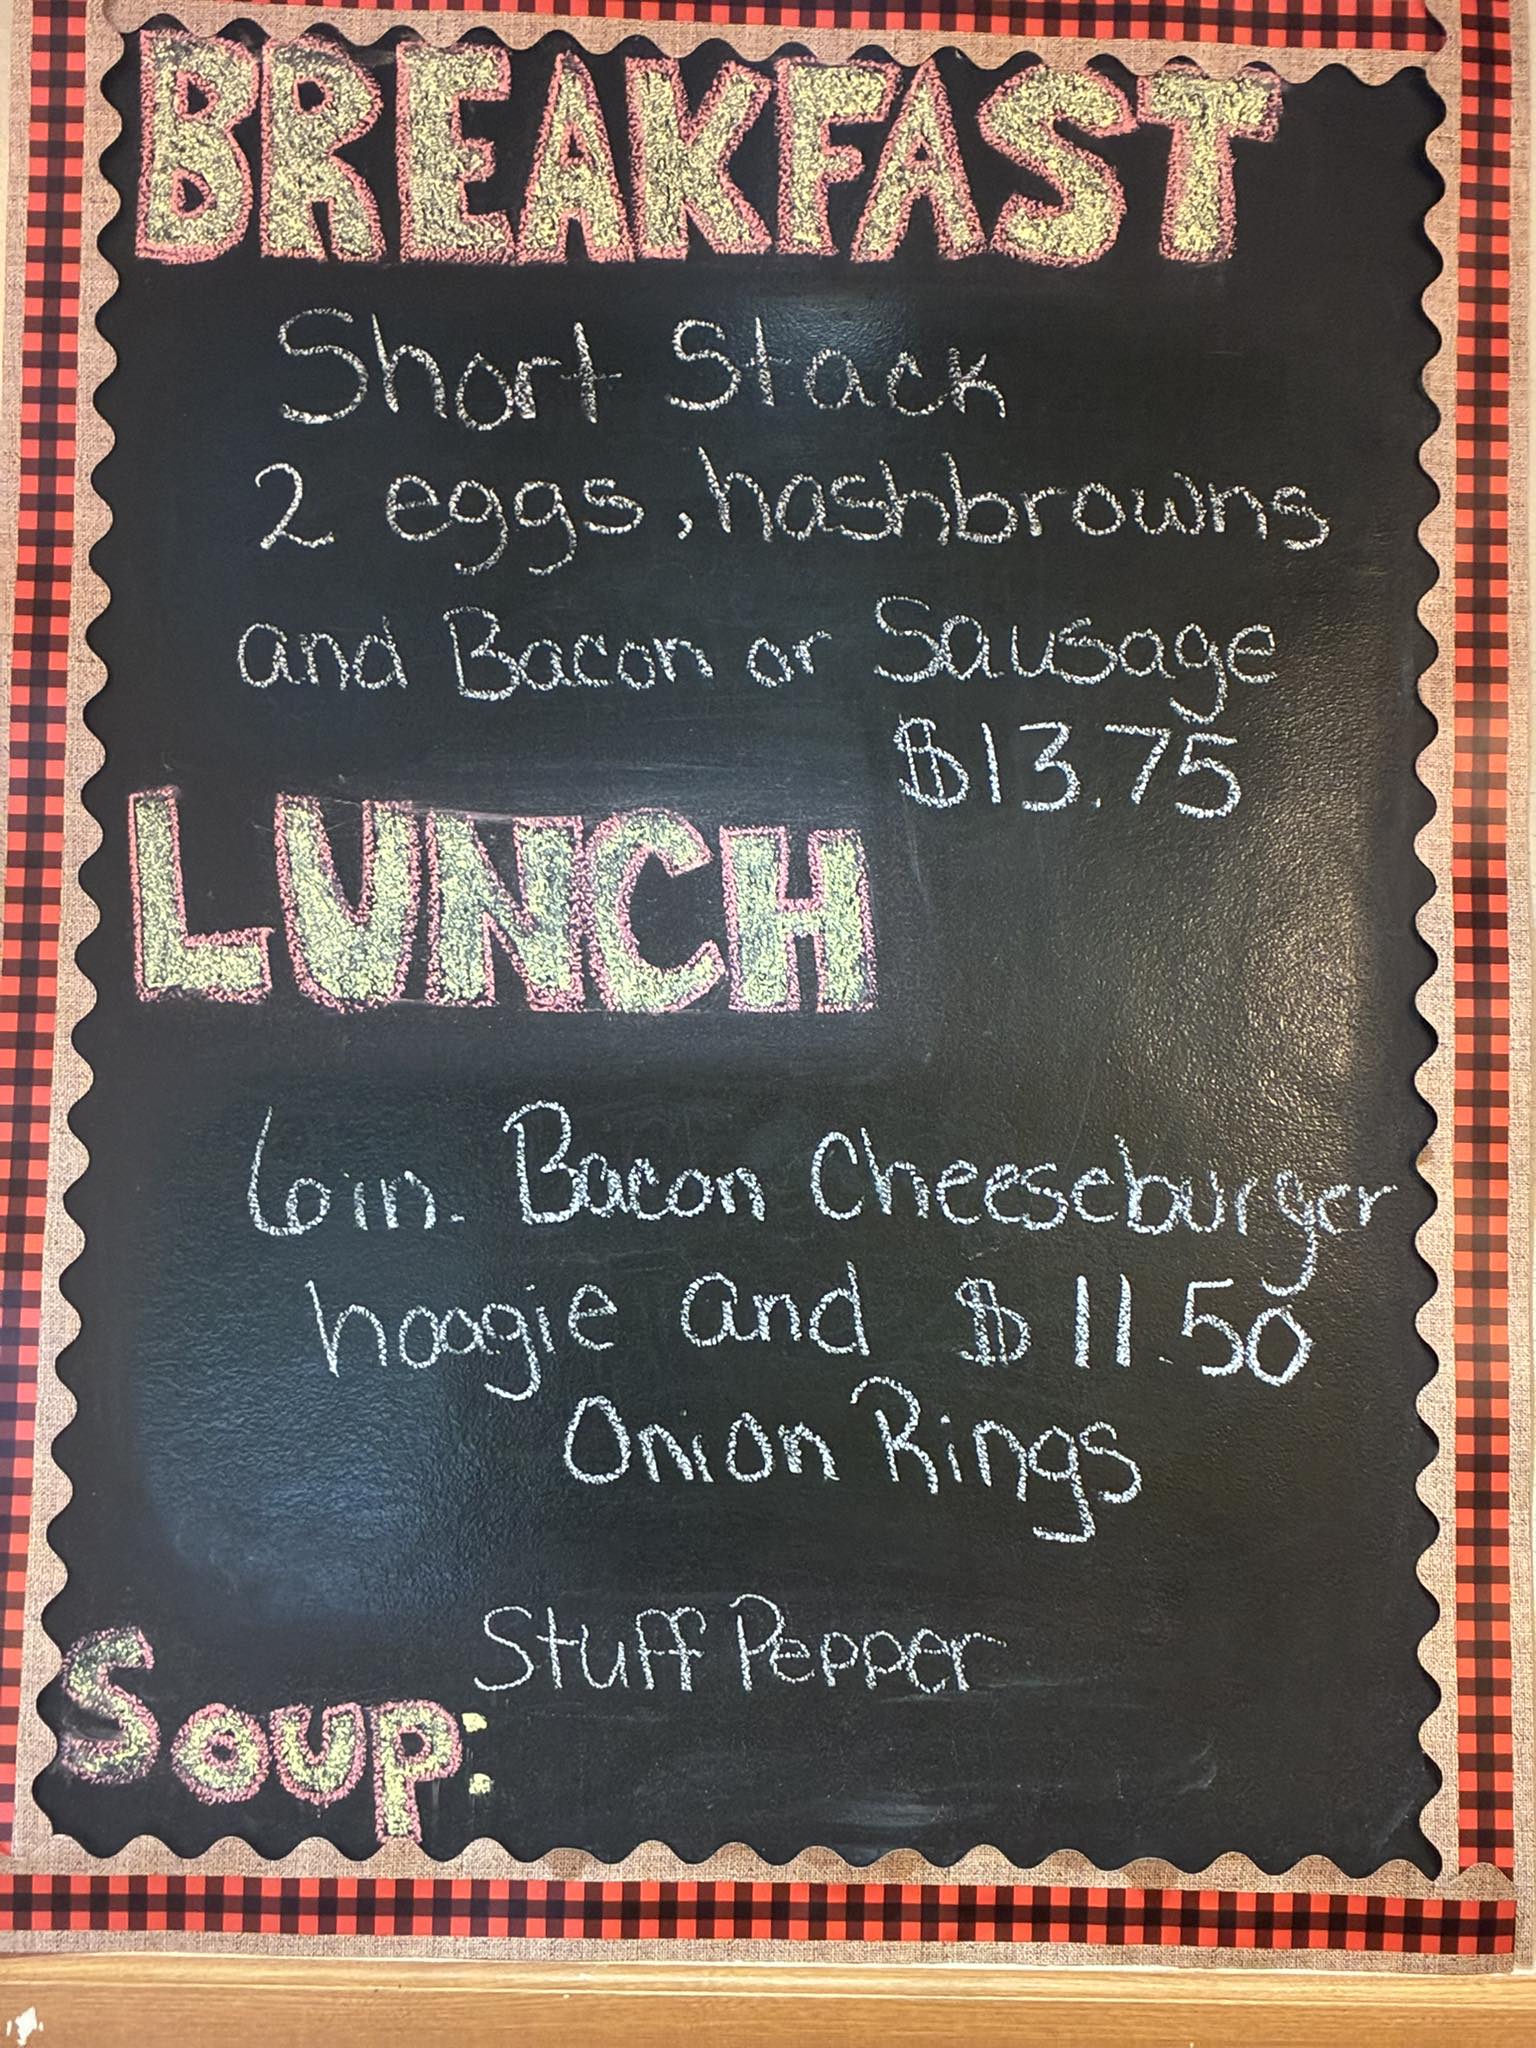 BREAKFAST
Short Stack
2 eggs, hashbrowns
and Bacon or Sausage
$13.75
LUNCH
6in. Bacon Cheeseburger
hoagie and $11.50
Onion Rings
Stuff Pepper
Soup: